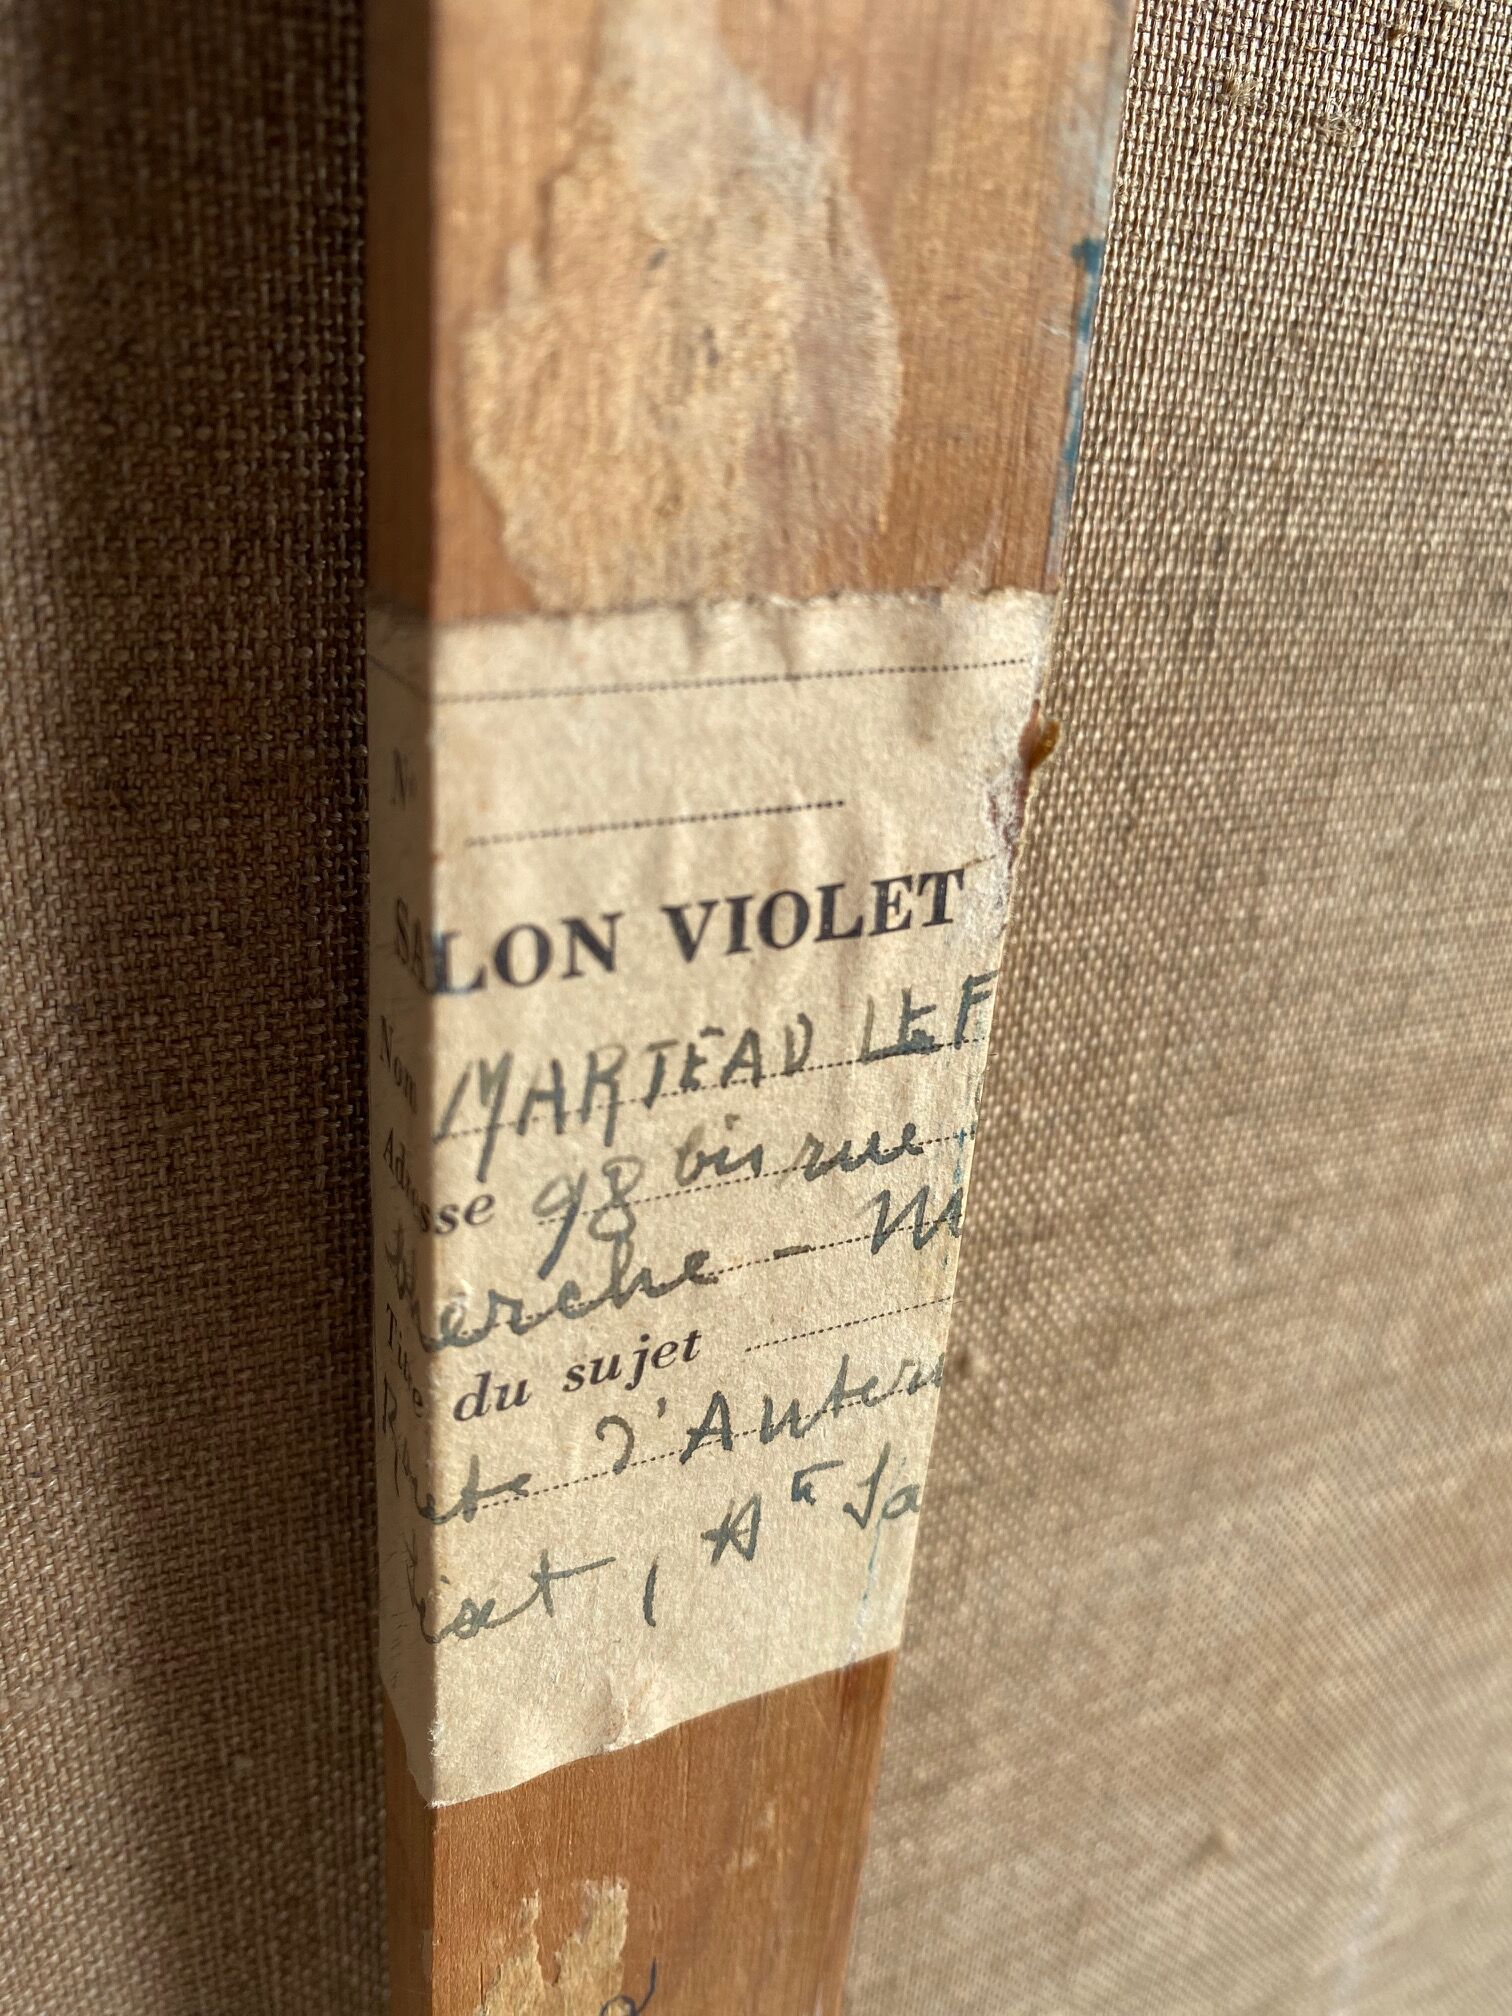 N°
SALON VIOLET
Nom MARTEAU LEF
Adresse 98 bis rue
cherche - M
Titre du sujet
Route d'Auteu
, A